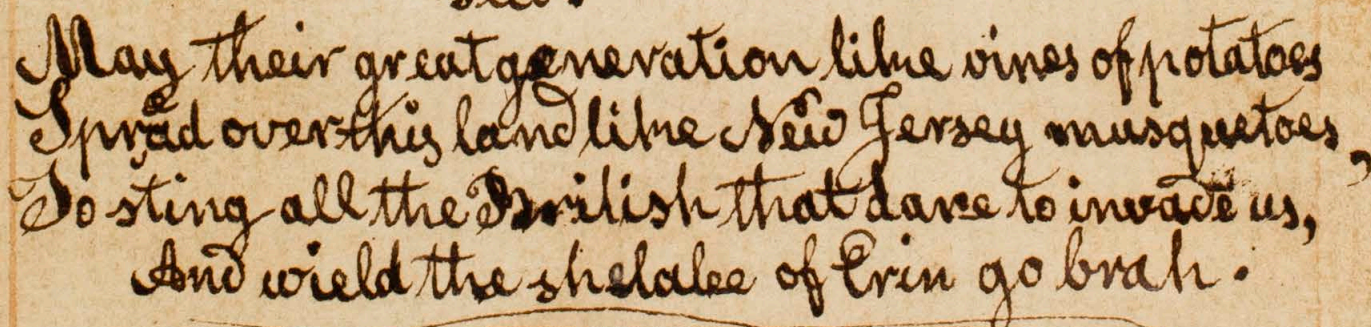 May their great generation like vines of potatoes
Spread over this land like New Jersey musquetoes,
To sting all the British that dare to invade us,
And wield the shelalee of Erin go brah.